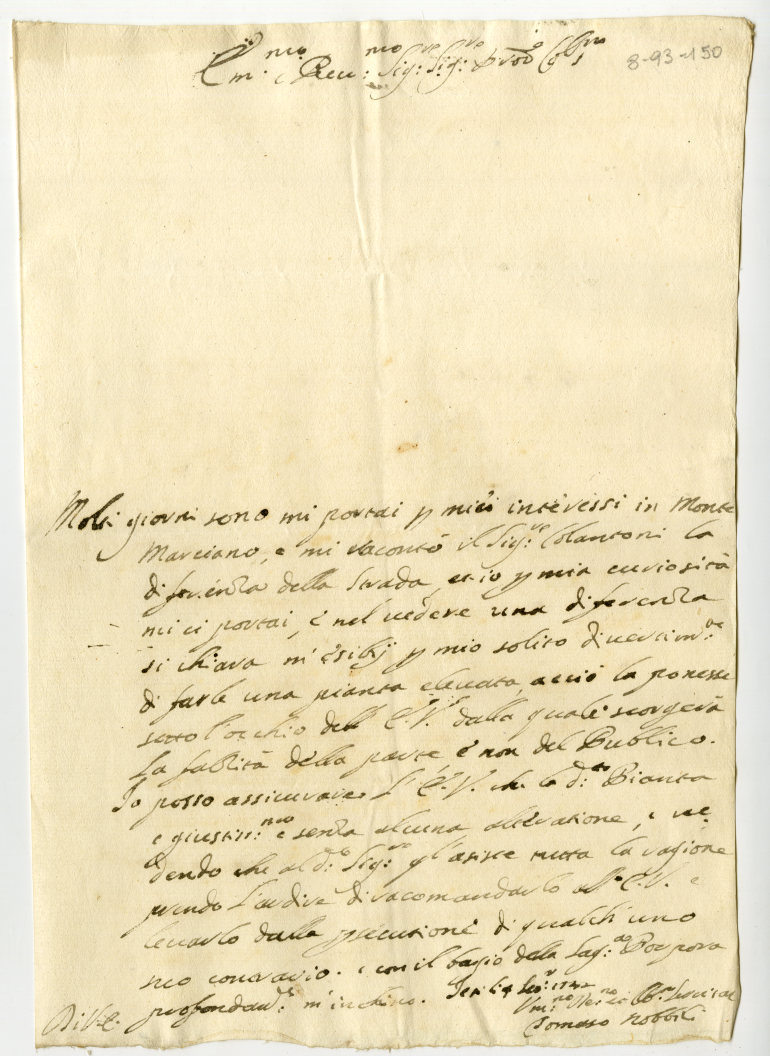 Em.mo e Reu.mo Sig.re Sig.re Prõn Col.mo
8-93-150
Molti giorni sono mi portai p miei interessi in Monte
Marciano, e mi racontò il Sig.re Colantoni la
diferénza della strada, et io p mia curiosità
mi ci portai, e nel uedere una diferenza
si chiara m'esibij p mio solito diuertim.to
di farle una pianta eleuata, acciò la ponesse
sotto l'occhio dell'E.V. dalla quale scorgerà
la falsità della parte e non del Publico.
Io posso assicurare l'E.V. che la d.ta Pianta
e giustiss.ma e senza alcuna alteratione, e ue:
dendo che al d.o Sig.re gl'asiste tutta la ragione
prendo l'ardire di racomandarlo all'E.V. e
leuarlo dalla psecutione di qualch'uno
suo contrario. e con il bagio della Sag.ta Porpora
profondam.te m'inchino.
Vm.mo Deu.mo Ob.mo Seruitore
Tomaso Nobbili
Di V.E.